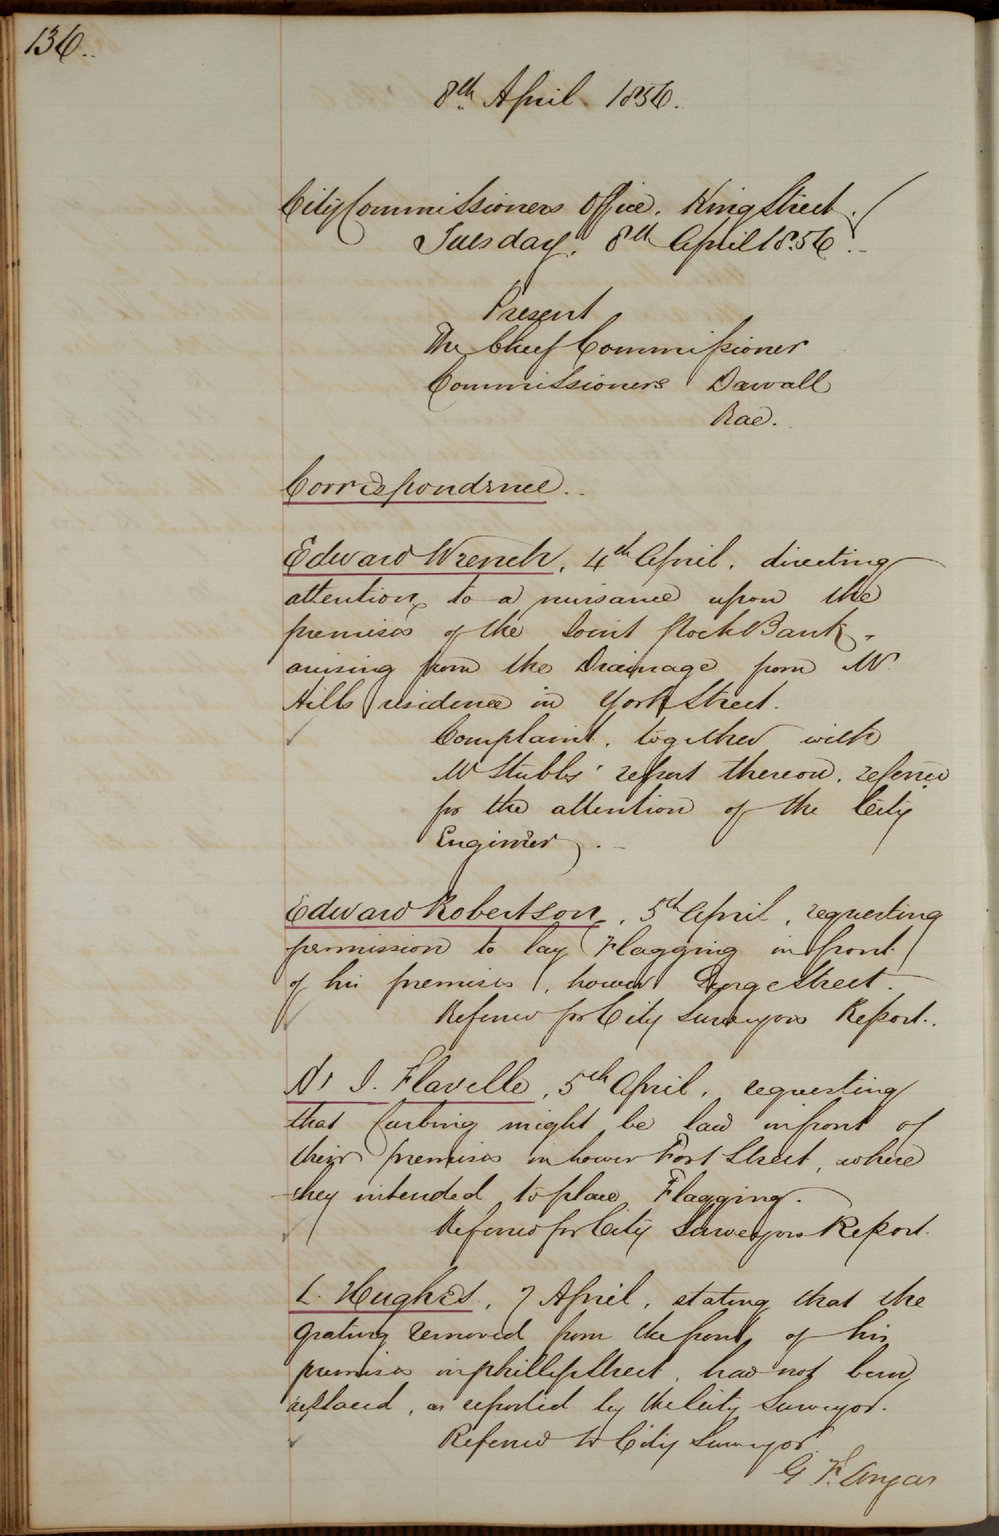 136.
8th April. 1856.
City Commissioners Office. King Street.
Tuesday. 8th April 1856.
Present
The Chief Commissioner
Commissioners Darvall
Rae.
Correspondence.
Edward Wrench, 4th April. directing
attention to a nuisance upon the
premises of the Joint Stock Bank,
arising from the Drainage from Mr
Hills residence in York Street.
Complaint, together with
Mr Stubbs' report thereon, referred
for the attention of the City
Engineer.
Edward Robertson, 5th April, requesting
permission to lay Flagging in front
of his premises, Lower George Street.
Referred for City Surveyors Report.
J. Flavelle, 5th April, requesting
that Curbing might be laid infront of
their premises in Lower Fort Street, where
they intended to place Flagging.
Referred for City Surveyors Report.
Hughes, 7 April, stating that the
Grating removed from the front of his
premises in phillip Street, had not been
replaced, as reported by the City Surveyor.
Referred to City Surveyor.